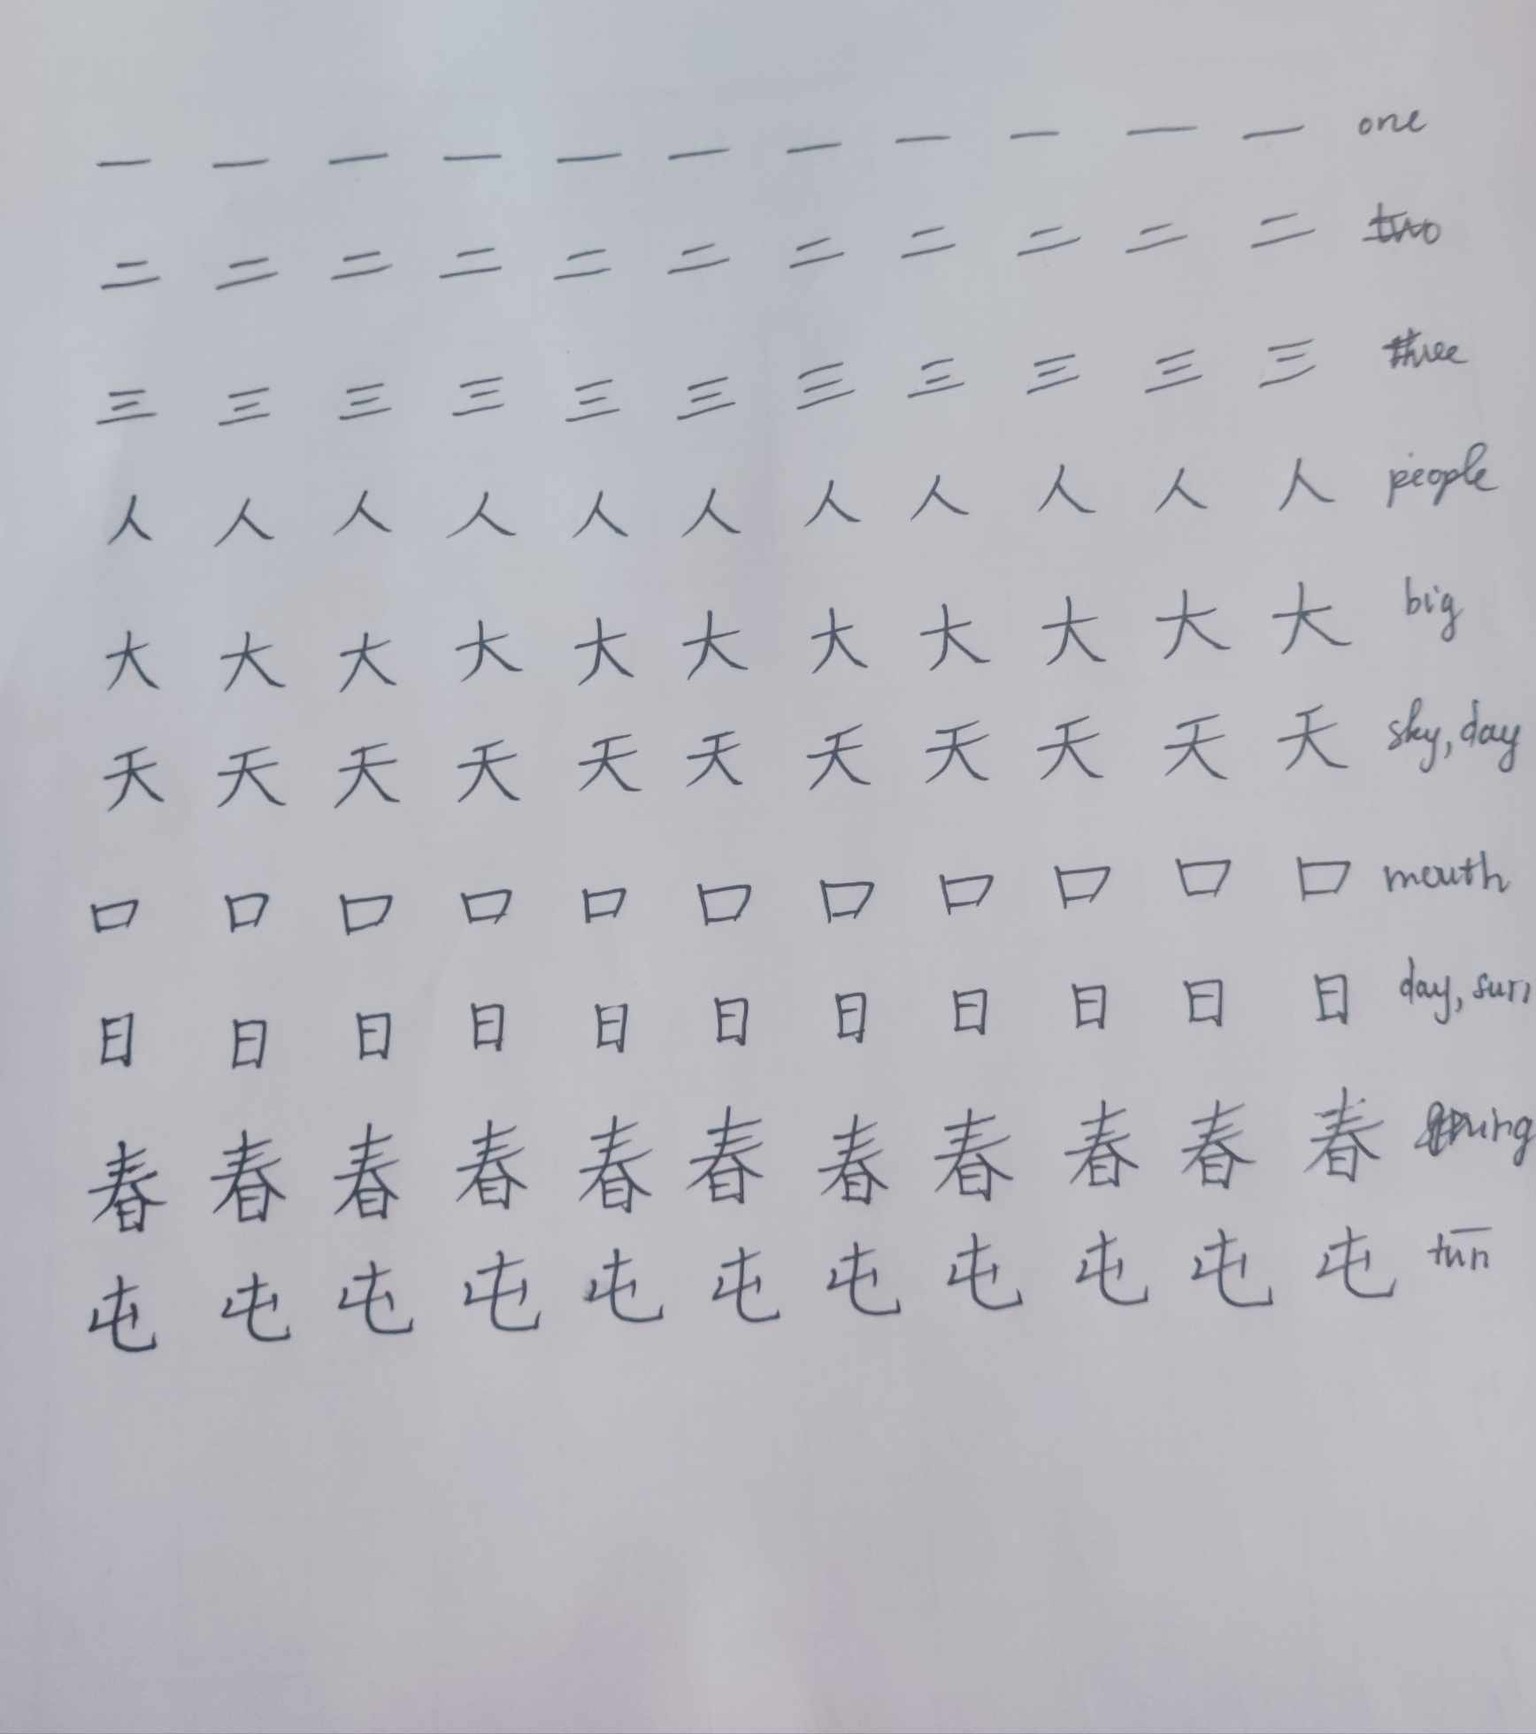 一 一 一 一 一 一 一 一 一 一 一 one
二 二 二 二 二 二 二 二 二 二 二 two
三 三 三 三 三 三 三 三 三 三 三 three
人 人 人 人 人 人 人 人 人 人 人 people
大 大 大 大 大 大 大 大 大 大 大 big
天 天 天 天 天 天 天 天 天 天 天 sky, day
口 口 口 口 口 口 口 口 口 口 口 mouth
日 日 日 日 日 日 日 日 日 日 日 day, sun
春 春 春 春 春 春 春 春 春 春 春 spring
屯 屯 屯 屯 屯 屯 屯 屯 屯 屯 屯 tūn